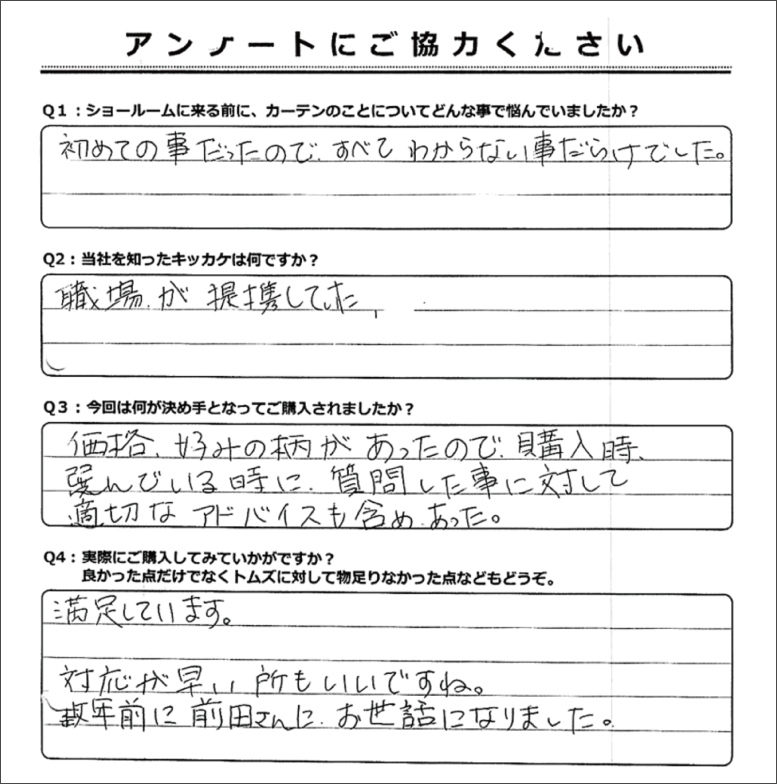 アンケートにご協力ください
Q1：ショールームに来る前に、カーテンのことについてどんな事で悩んでいましたか？
初めての事だったので、すべて わからない事だらけでした。
Q2：当社を知ったキッカケは何ですか？
職場が 提携していた
Q3：今回は何が決め手となってご購入されましたか？
価格、好みの柄が あったので、購入時、
選んでいる時に、質問した事に対して
適切な アドバイスも含め、あった。
Q4：実際にご購入してみていかがですか？
良かった点だけでなくトムズに対して物足りなかった点などもどうぞ。
満足しています。
対応が早い所もいいですね。
数年前に 前田さんに、お世話になりました。